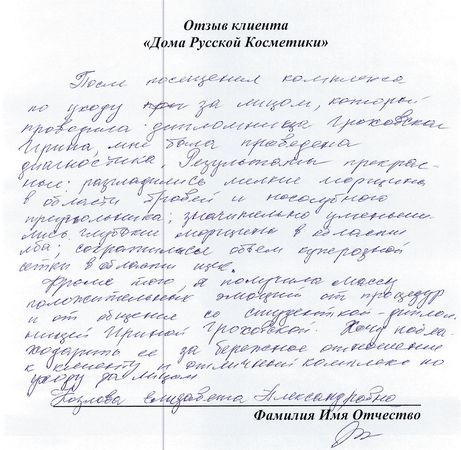 Отзыв клиента
«Дома Русской Косметики»
После посещения комплекса
по уходу за лицом, который
проводила дипломница Гроховская
Ирина, мне была проведена
диагностика. Результаты прекрас-
ные: разгладились мелкие морщины
в области бровей и носогубного
треугольника; значительно уменьши-
лись глубокие морщины в области
лба; сократился объем куперозной
сетки в области щек.
Кроме того, я получила массу
положительных эмоций от процедур
и от общения со студенткой-диплом-
ницей Ириной Гроховской. Хочу побла-
годарить ее за бережное отношение
к клиенту и отличный комплекс по
уходу за лицом
Козлова Елизавета Александровна
Фамилия Имя Отчество